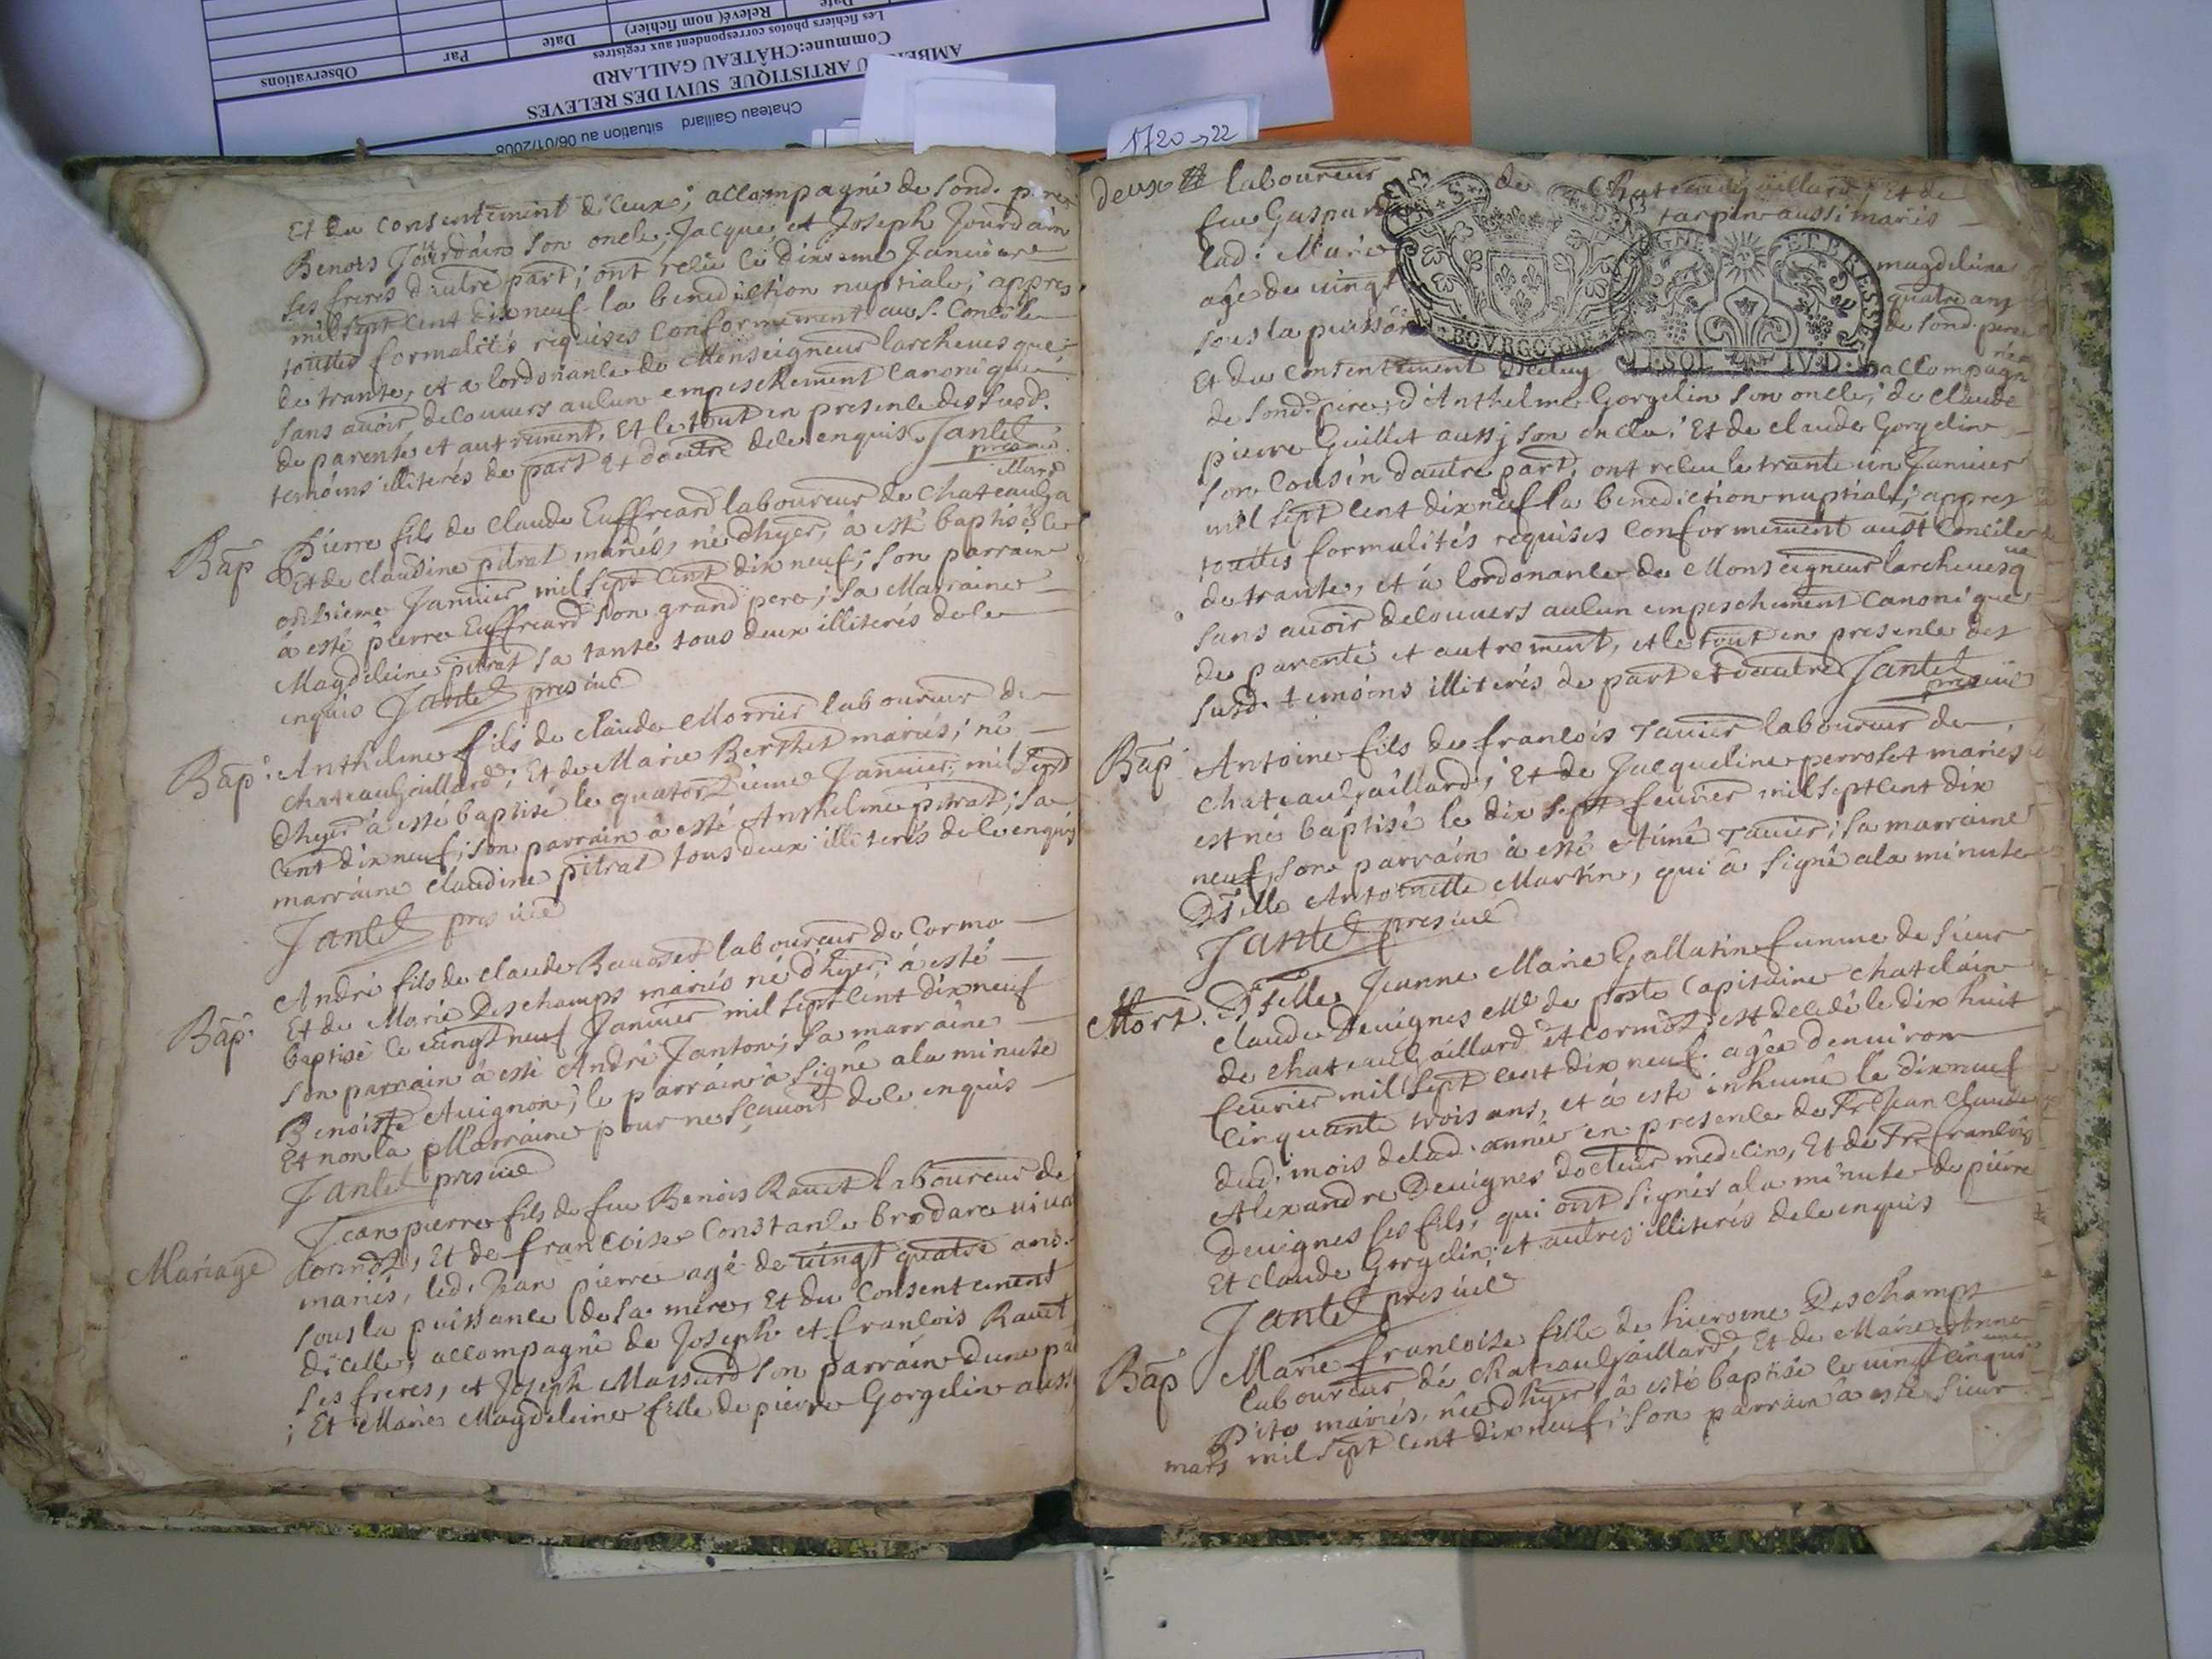 Chateau Gaillard situation au 06/01/2008
ARTISTIQUE SUIVI DES RELEVES
Commune:CHÂTEAU GAILLARD
Les fichiers photos correspondent aux registres
Relevé( nom fichier)
Date
Par
Observations
Date
1720 -> 22
Et du consentement d'iceux; accompagné de sond. pere
Benois Jourdain son oncle, Jacque, et Joseph Jourdain
ses freres d'autre part; ont receu le dixieme Januier
mil sept cent dix neuf la benediction nuptiale; appres
touttes formalités requises conformement au S. Concile
de trante, et a lordonance de Monseigneur larcheuesque
sans auoir decouuers aucun empeschement canonique
de parenté et autrement, Et le tout en presence des susd.
temoins illiterés de part et dautre de ce enquis Jantet
pres uic
Bap
Pierre fils de Claude Euffreard laboureur de Chateauga
illard
Et de Claudine pitrat mariés, né dhyer, à esté baptisé le
onzieme Januier mil sept cent dix neuf; son parrain
à esté pierre Euffreard son grand pere; sa Marraine
Magdeleine pitrat sa tante tous deux illiterés de ce
enquis Jantet pres uic
Bap.
Anthelme fils de Claude Morrier laboureur de
Chateaugaillard; Et de Marie Berthet mariés; né
dhyer à esté baptisé le quatorzieme Januier, mil sept
cent dix neuf; son parrain à esté Anthelme pitrat; sa
marraine Claudine pitrat tous deux illiterés de ce enquis
Jantet pres uic
Bap.
André fils de Claude laboureur de Cormo
Et de Marie Deschamps mariés né d'hyer, à esté
baptisé le uingt neuf Januier mil sept cent dix neuf
son parrain à esté André Janton; sa marraine
Benoiste Auignon; le parrain à signé a la minute
Et non la Marraine pour ne sçauoir de ce enquis
Jantet pres uic
Mariage
Jean pierre fils de feu Benois Rauet laboureur de
Cormoz, Et de francoise Constance brodare uiua
mariés, led. Jean pierre agé de uingt quatre ans.
sous la puissance de sa mere, Et du Consentement
dicelle, accompagné de Joseph et francois Rauet
ses freres, et Joseph Massard son parrain dune pa
; Et Marie Magdeleine fille de pierre Gorgelin aussi
deux
laboureur de Chateaugaillard, Et de
feue Gasparde tarpin aussi mariés
lad. Marie magdeleine
age de uingt quatre ans
sous la puissan de sond. pere
Et du Consentement diceluy accompagn
née
de sond. pere, d'Anthelme Gorgelin son oncle, de Claude
pierre Guillet aussj son oncle. Et de Claude Gorgelin
son Cousin dautre part, ont receu le trante un Januier
mil sept cent dix neuf la benediction nuptiale; appres
touttes formalités requises conformement au st Concile
de trante, et à lordonance de Monseigneur larcheuesq
ue
sans auoir decouuers aucun empeschement canonique
de parenté et autrement, et le tout en presence des
susd. temoins illiterés de part et dautre Jantet
pres uic
BOVRGOGNE
ET BRESSE
I SOL IV D
Bap
Antoine fils de francois Tauier laboureur de
Chateaugaillard; Et de Jacqueline perroset mariés
est né baptisé le dix sept feurier mil sept cent dix
neuf, son parrain à esté Aimé Tauier; sa marraine
Dselle Antoinette Martin, qui à signé a la minute
Jantet pres uic
Mort.
Dselle Jeanne Marie Gallatin femme de sieur
Claude Deuignes Me de poste Capitaine Chatelain
de Chateaugaillard et Cormoz est decedé le dix huit
feurier mil sept cent dix neuf. agée denuiron
cinquante trois ans, et à esté inhumé le dix neuf
dud. mois de lad. année en presence de Jean Claude
Alexandre Deuignes docteur medecin, Et de francois
Deuignes ses fils, qui ont signés a la minute de pierre
Et Claude Gorgelin, et autres illiterés de ce enquis
Jantet pres uic
Bap
Marie francoise fille de hierome Deschamps
laboureur de Chateaugaillard, Et de Marie Anne
Pito mariés, née dhyer, à esté baptisé le uingt cinqui
eme
mars mil sept cent dix neuf; son parrain à esté sieur